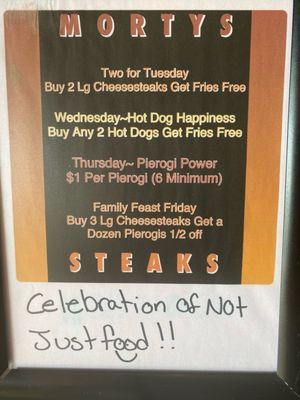 MORTYS
Two for Tuesday
Buy 2 Lg Cheesesteaks Get Fries Free
Wednesday~Hot Dog Happiness
Buy Any 2 Hot Dogs Get Fries Free
Thursday~ Pierogi Power
$1 Per Pierogi (6 Minimum)
Family Feast Friday
Buy 3 Lg Cheesesteaks Get a
Dozen Pierogis 1/2 off
STEAKS
Celebration of Not
Just food!!